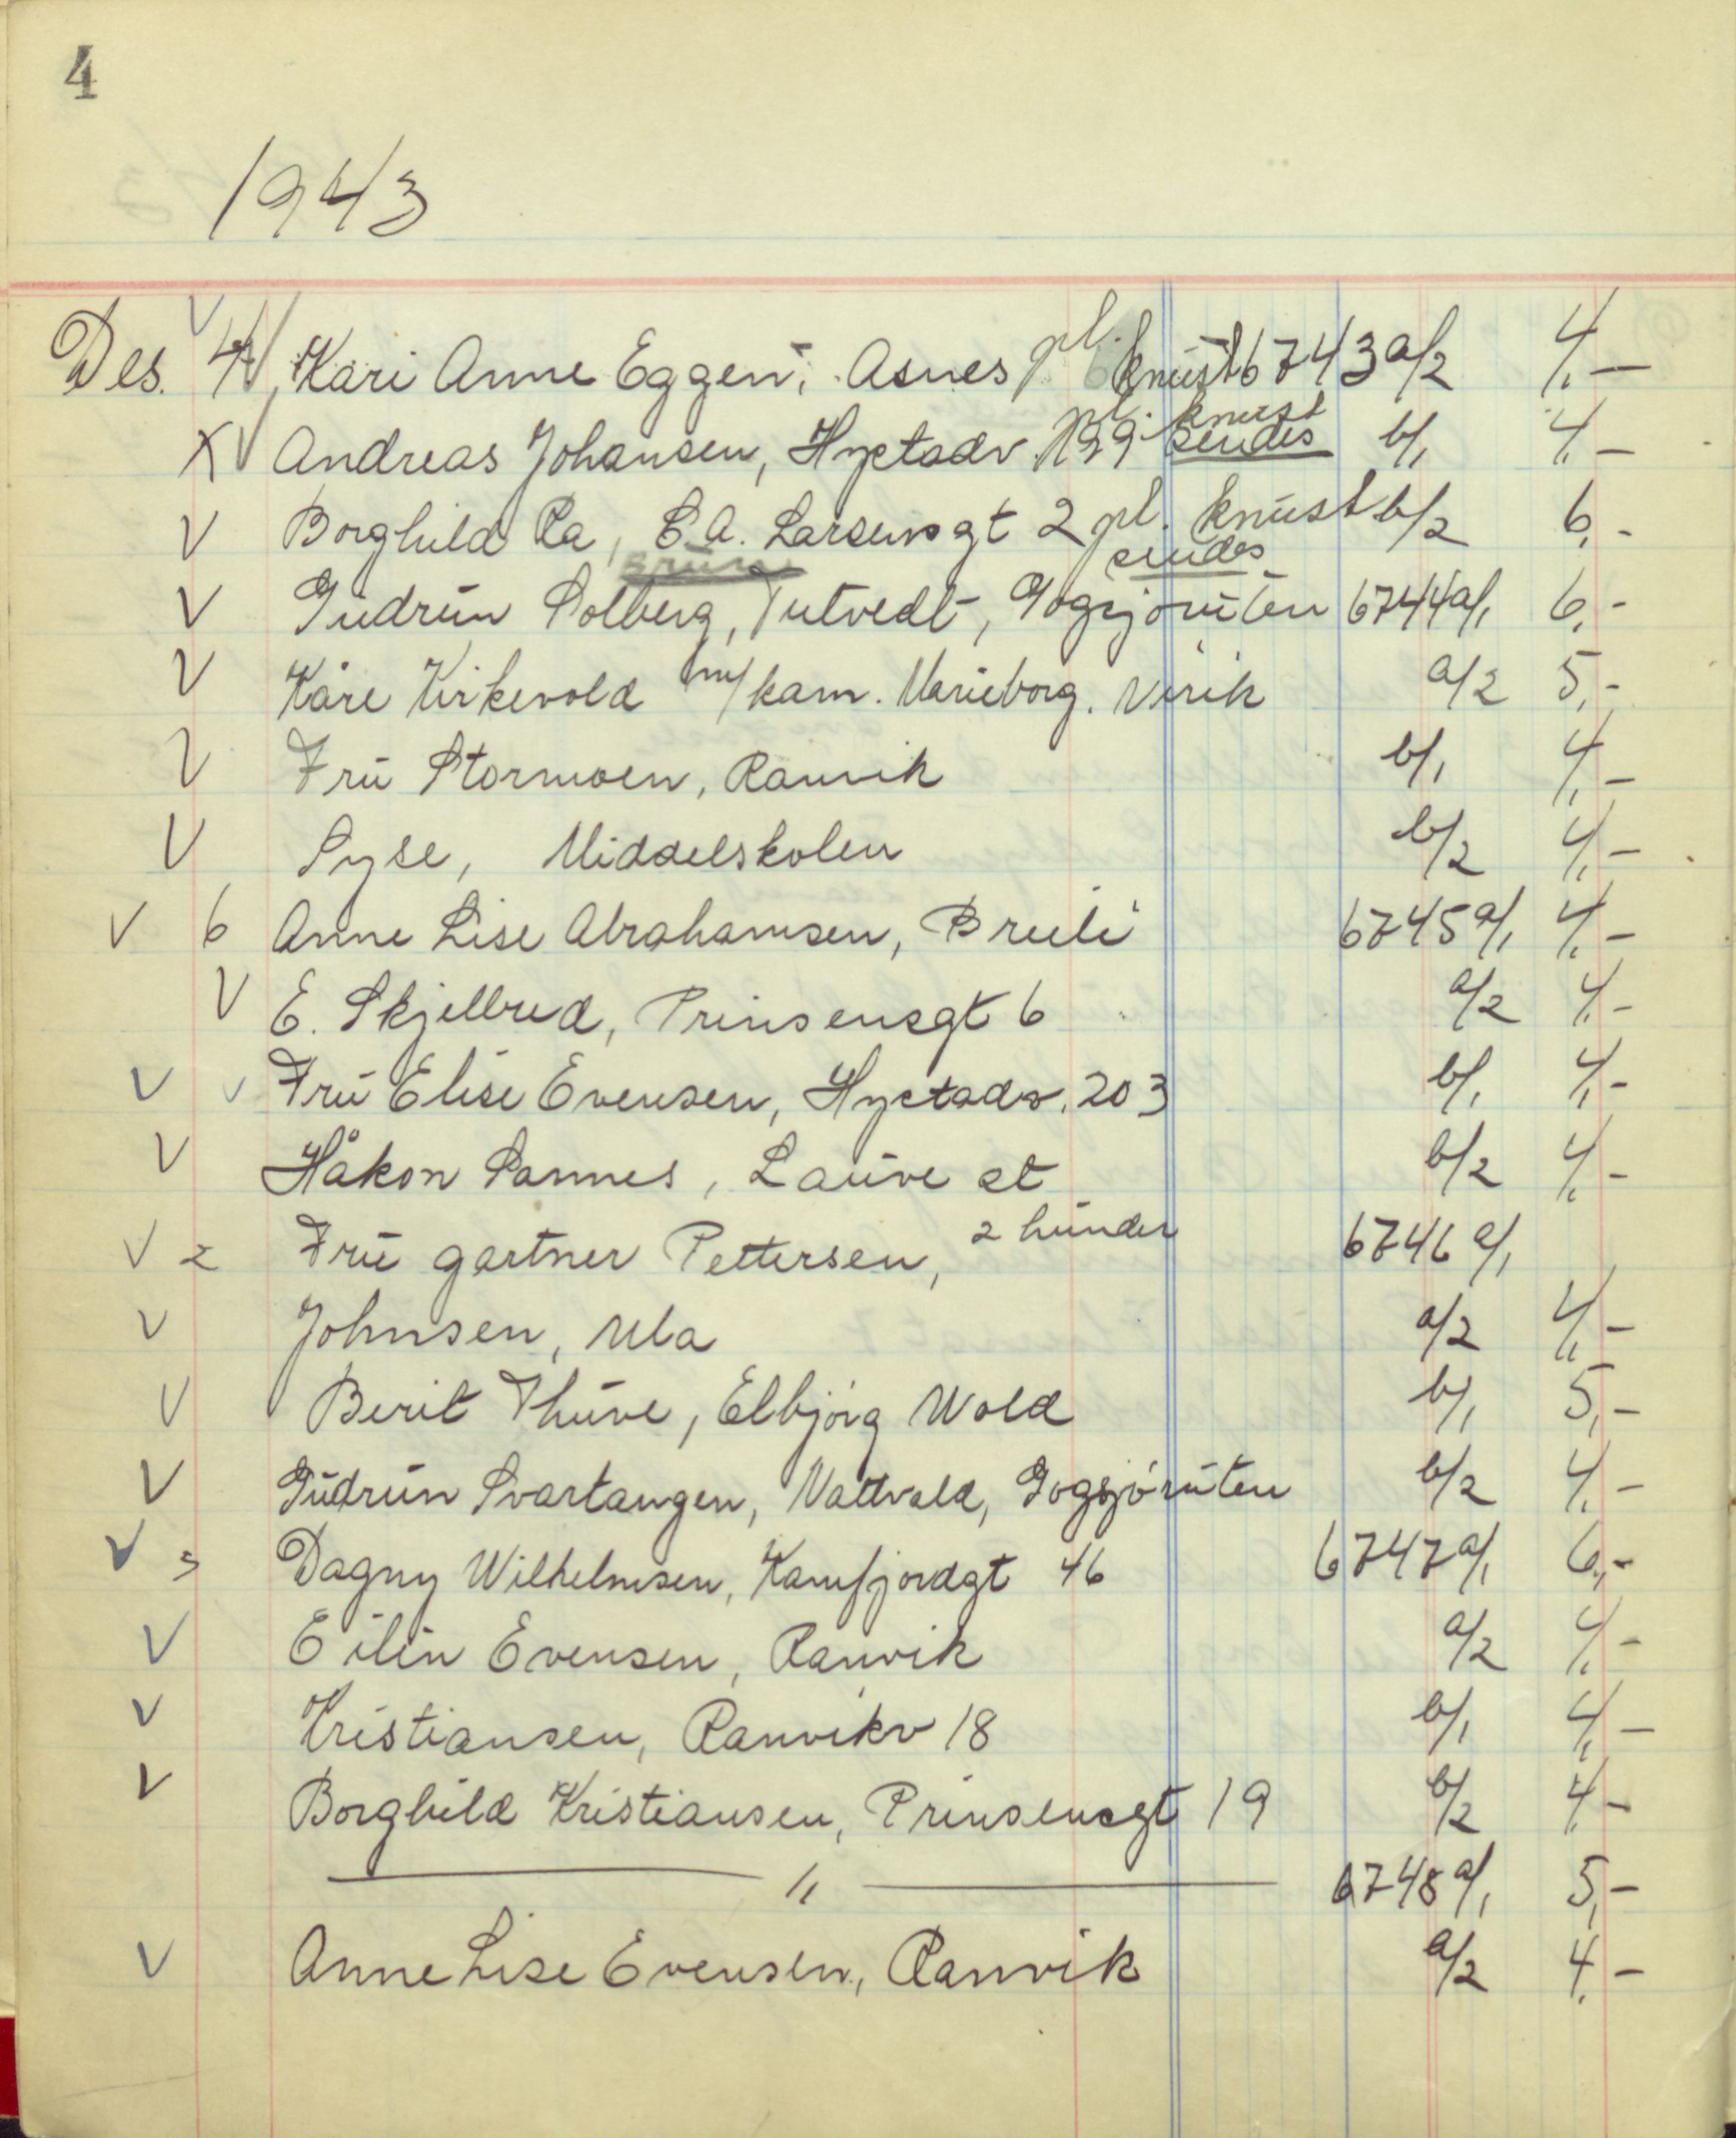 4
1943
Des. 4 Kari Anne Eggen, Asnes pl. knust 6743 a/2 4,-
X V Andreas Johansen, Hystadv. 199 pl. knust sendes b/1 4,-
V Borghild Ra, C.A. Larsensgt 2 pl. knust b/2 6,-
sendes
V Gudrun Solberg, Tutvedt, Gogsjøruten 6744 a/1 6,-
V Kåre Kirkevold m/kam. Marieborg. Virik a/2 5,-
V Fru Stormoen, Ranvik b/1 4,-
V Syse, Middelskolen b/2 4,-
V 6 Anne Lise Abrahamsen, Breili 6745 a/1 4,-
V E. Skjelbred, Prinsensgt 6 a/2 4,-
V V Fru Elise Evensen, Hystadv. 203 b/1 4,-
V Håkon Sannes, Lauve st b/2 4,-
V 2 Fru gartner Pettersen, 2 hunder 6746 a/1
V Johnsen, Ula a/2 4,-
V Berit Thuve, Elbjörg Wold b/1 5,-
V Gudrun Svartangen, Nattvald, Gogsjøruten b/2 4,-
V 3 Dagny Wilhelmsen, Kamfjordgt 46 6747 a/1 6,-
V Eilin Evensen, Ranvik a/2 4,-
V Kristiansen, Ranvikv 18 b/1 4,-
V Borghild Kristiansen, Prinsensgt 19 b/2 4,-
— " — 6748 a/1 5,-
V Anne Lise Evensen, Ranvik a/2 4,-